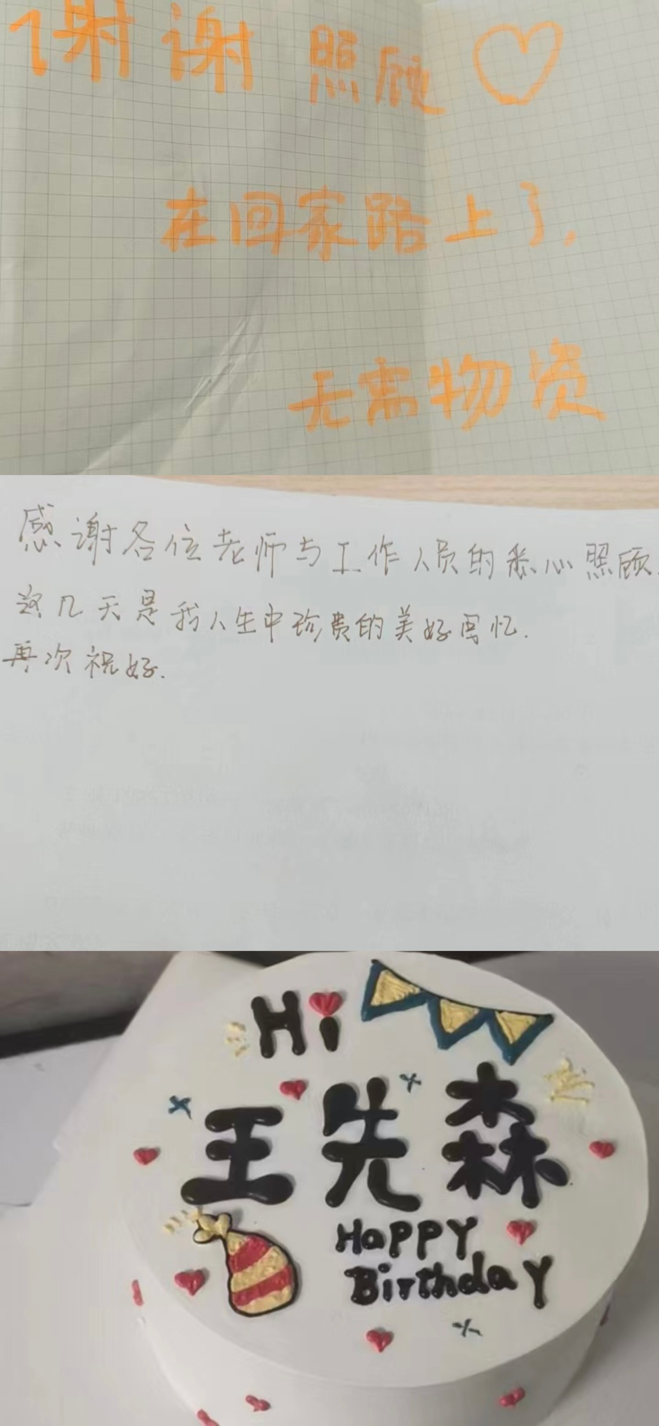 谢谢 照顾
在回家路上了,
无需物资
感谢各位老师与工作人员的悉心照顾.
这几天是我人生中珍贵的美好回忆.
再次祝好.
Hi
王先森
Happy
Birthday